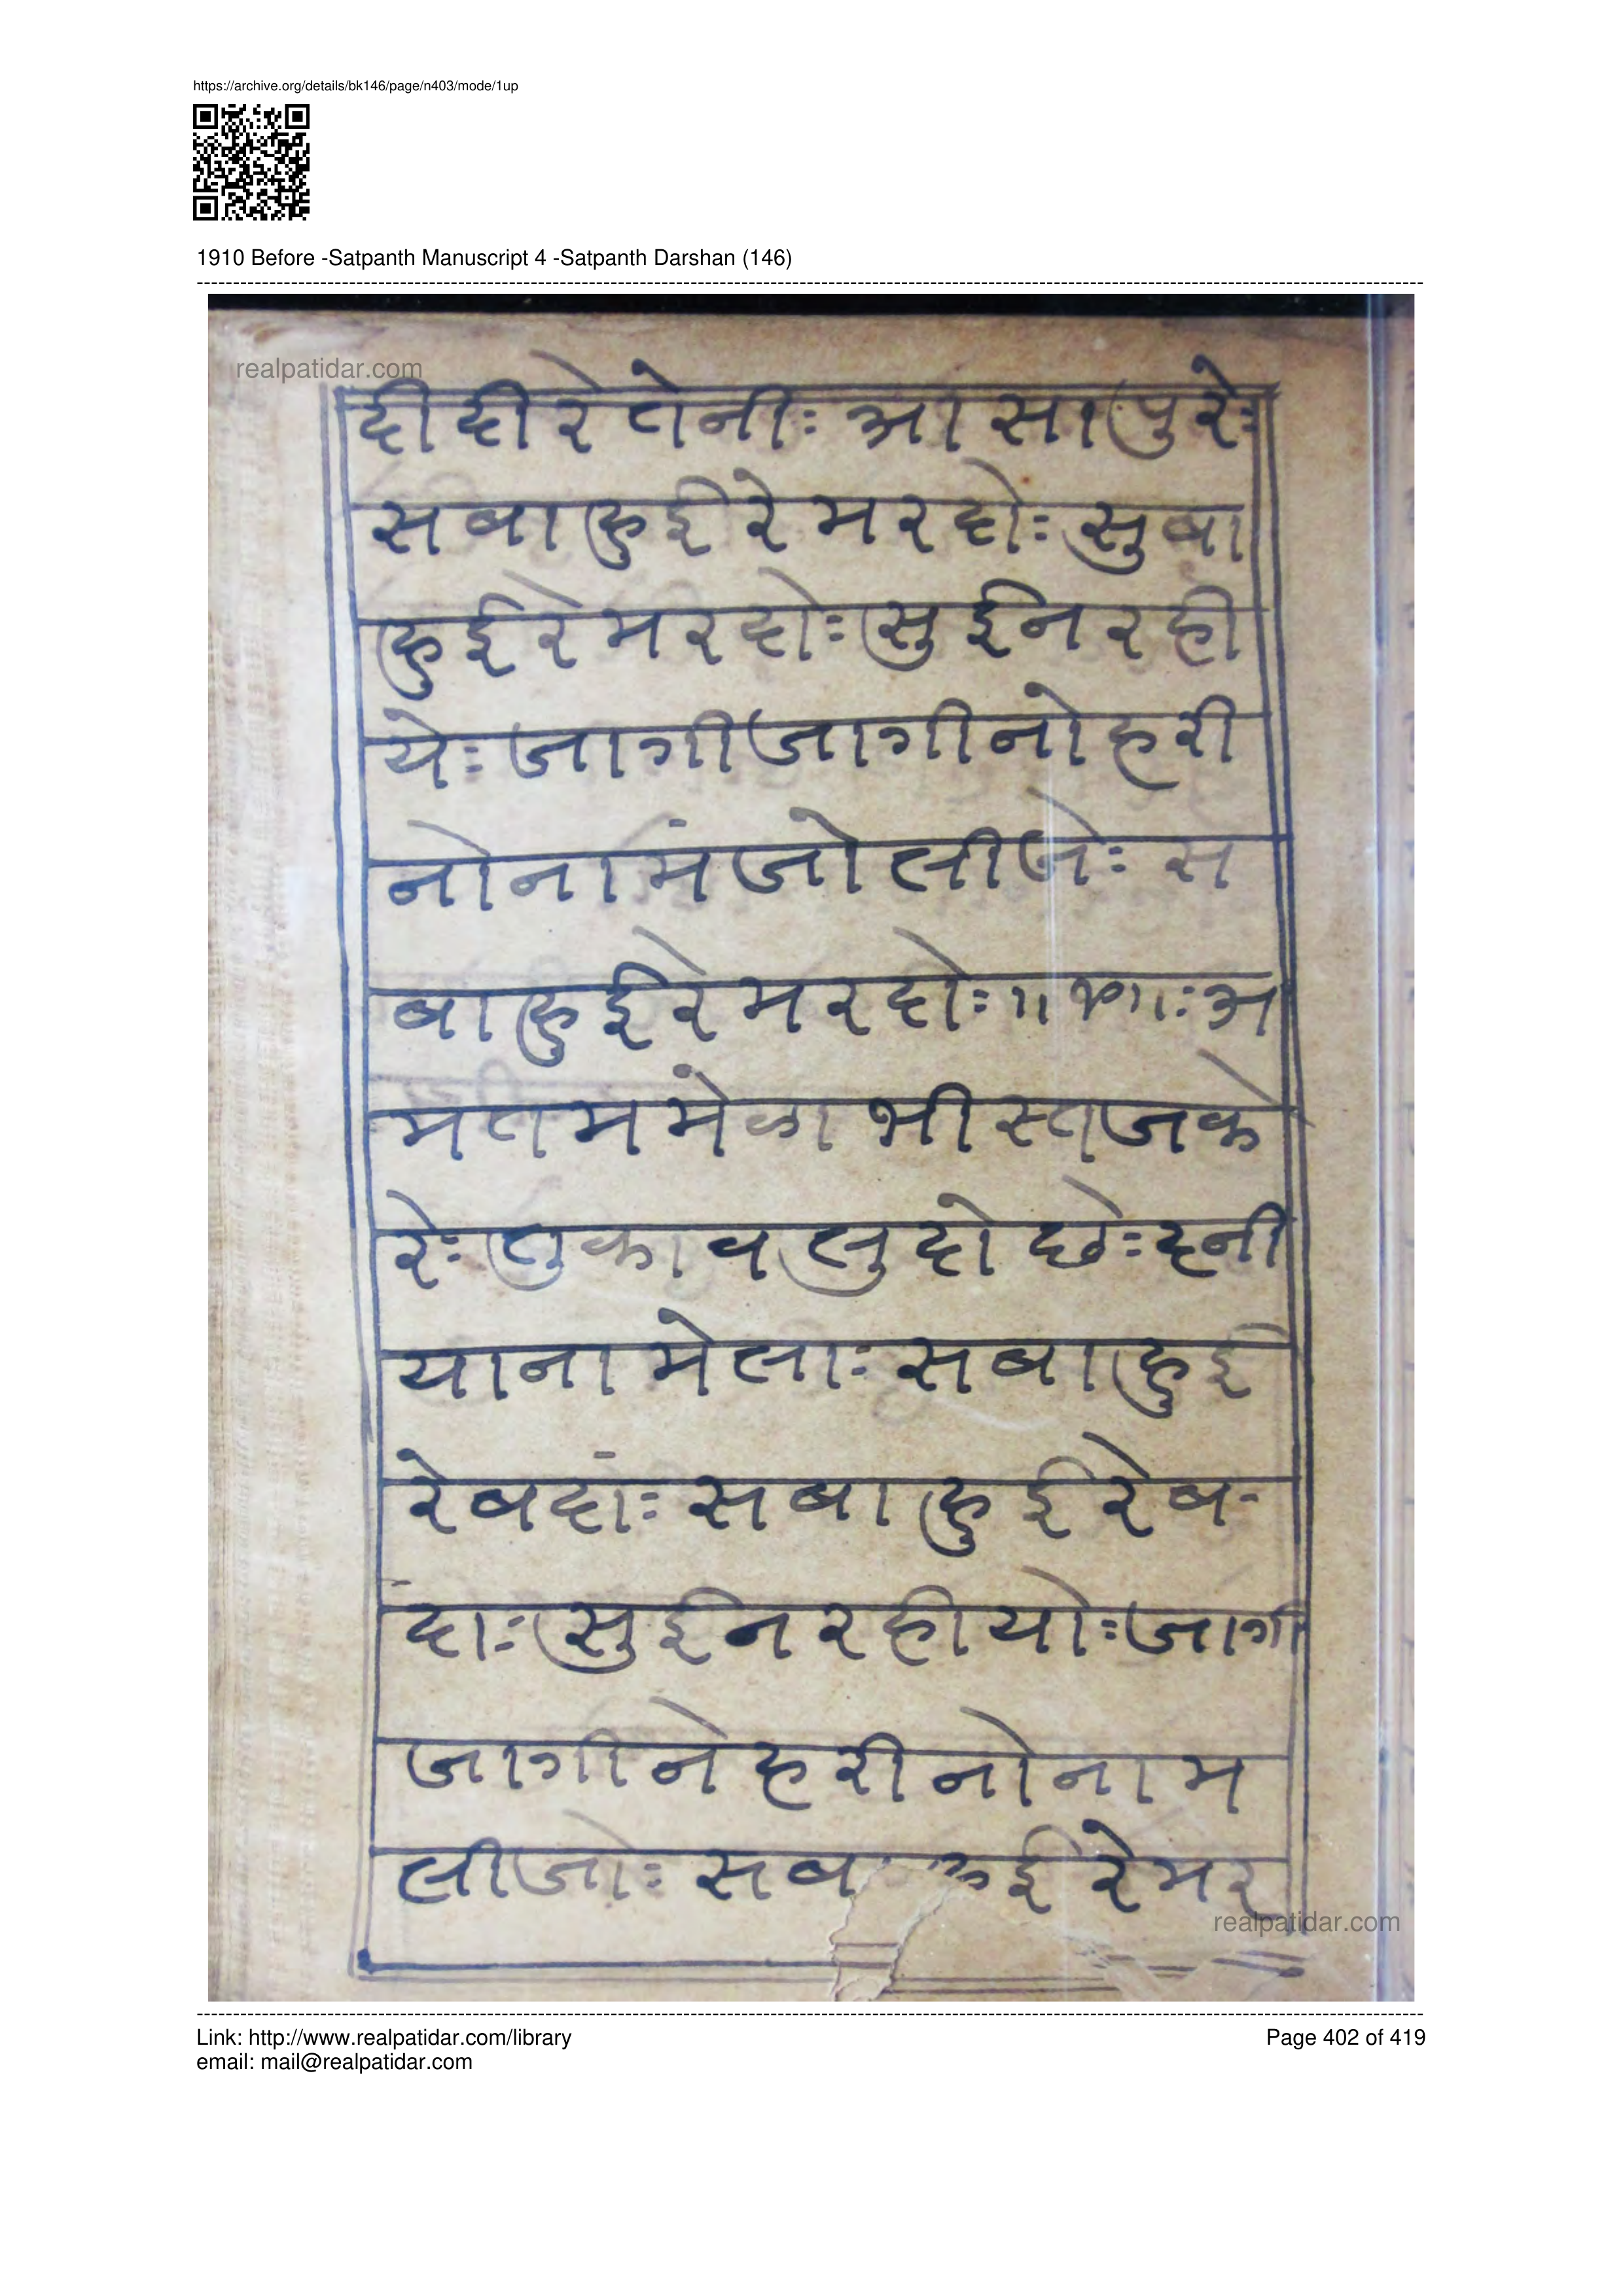 https://archive.org/details/bk146/page/n403/mode/1up
1910 Before -Satpanth Manuscript 4 -Satpanth Darshan (146)
realpatidar.com
दीदीरेतेनीः आसापुरेः
सबाहुईरेमरदोः सुबा
हुईरेमरदोः सुईनरही
येः जागीजागीनोहरी
नोनामंजोलीजेः स
बाहुईरेमरदोः अ
मतममेका भीस्तजके
रेः तुकावलुदोछेः दनी
यानामेलाः सबाहुई
रेबदांः सबाहुईरेब-
दाः सुईनरहीयोः जागी
जागीनेहरीनोनाम
लीजोः सब ईरेमर
realpatidar.com
Link: http://www.realpatidar.com/library
Page 402 of 419
email: mail@realpatidar.com